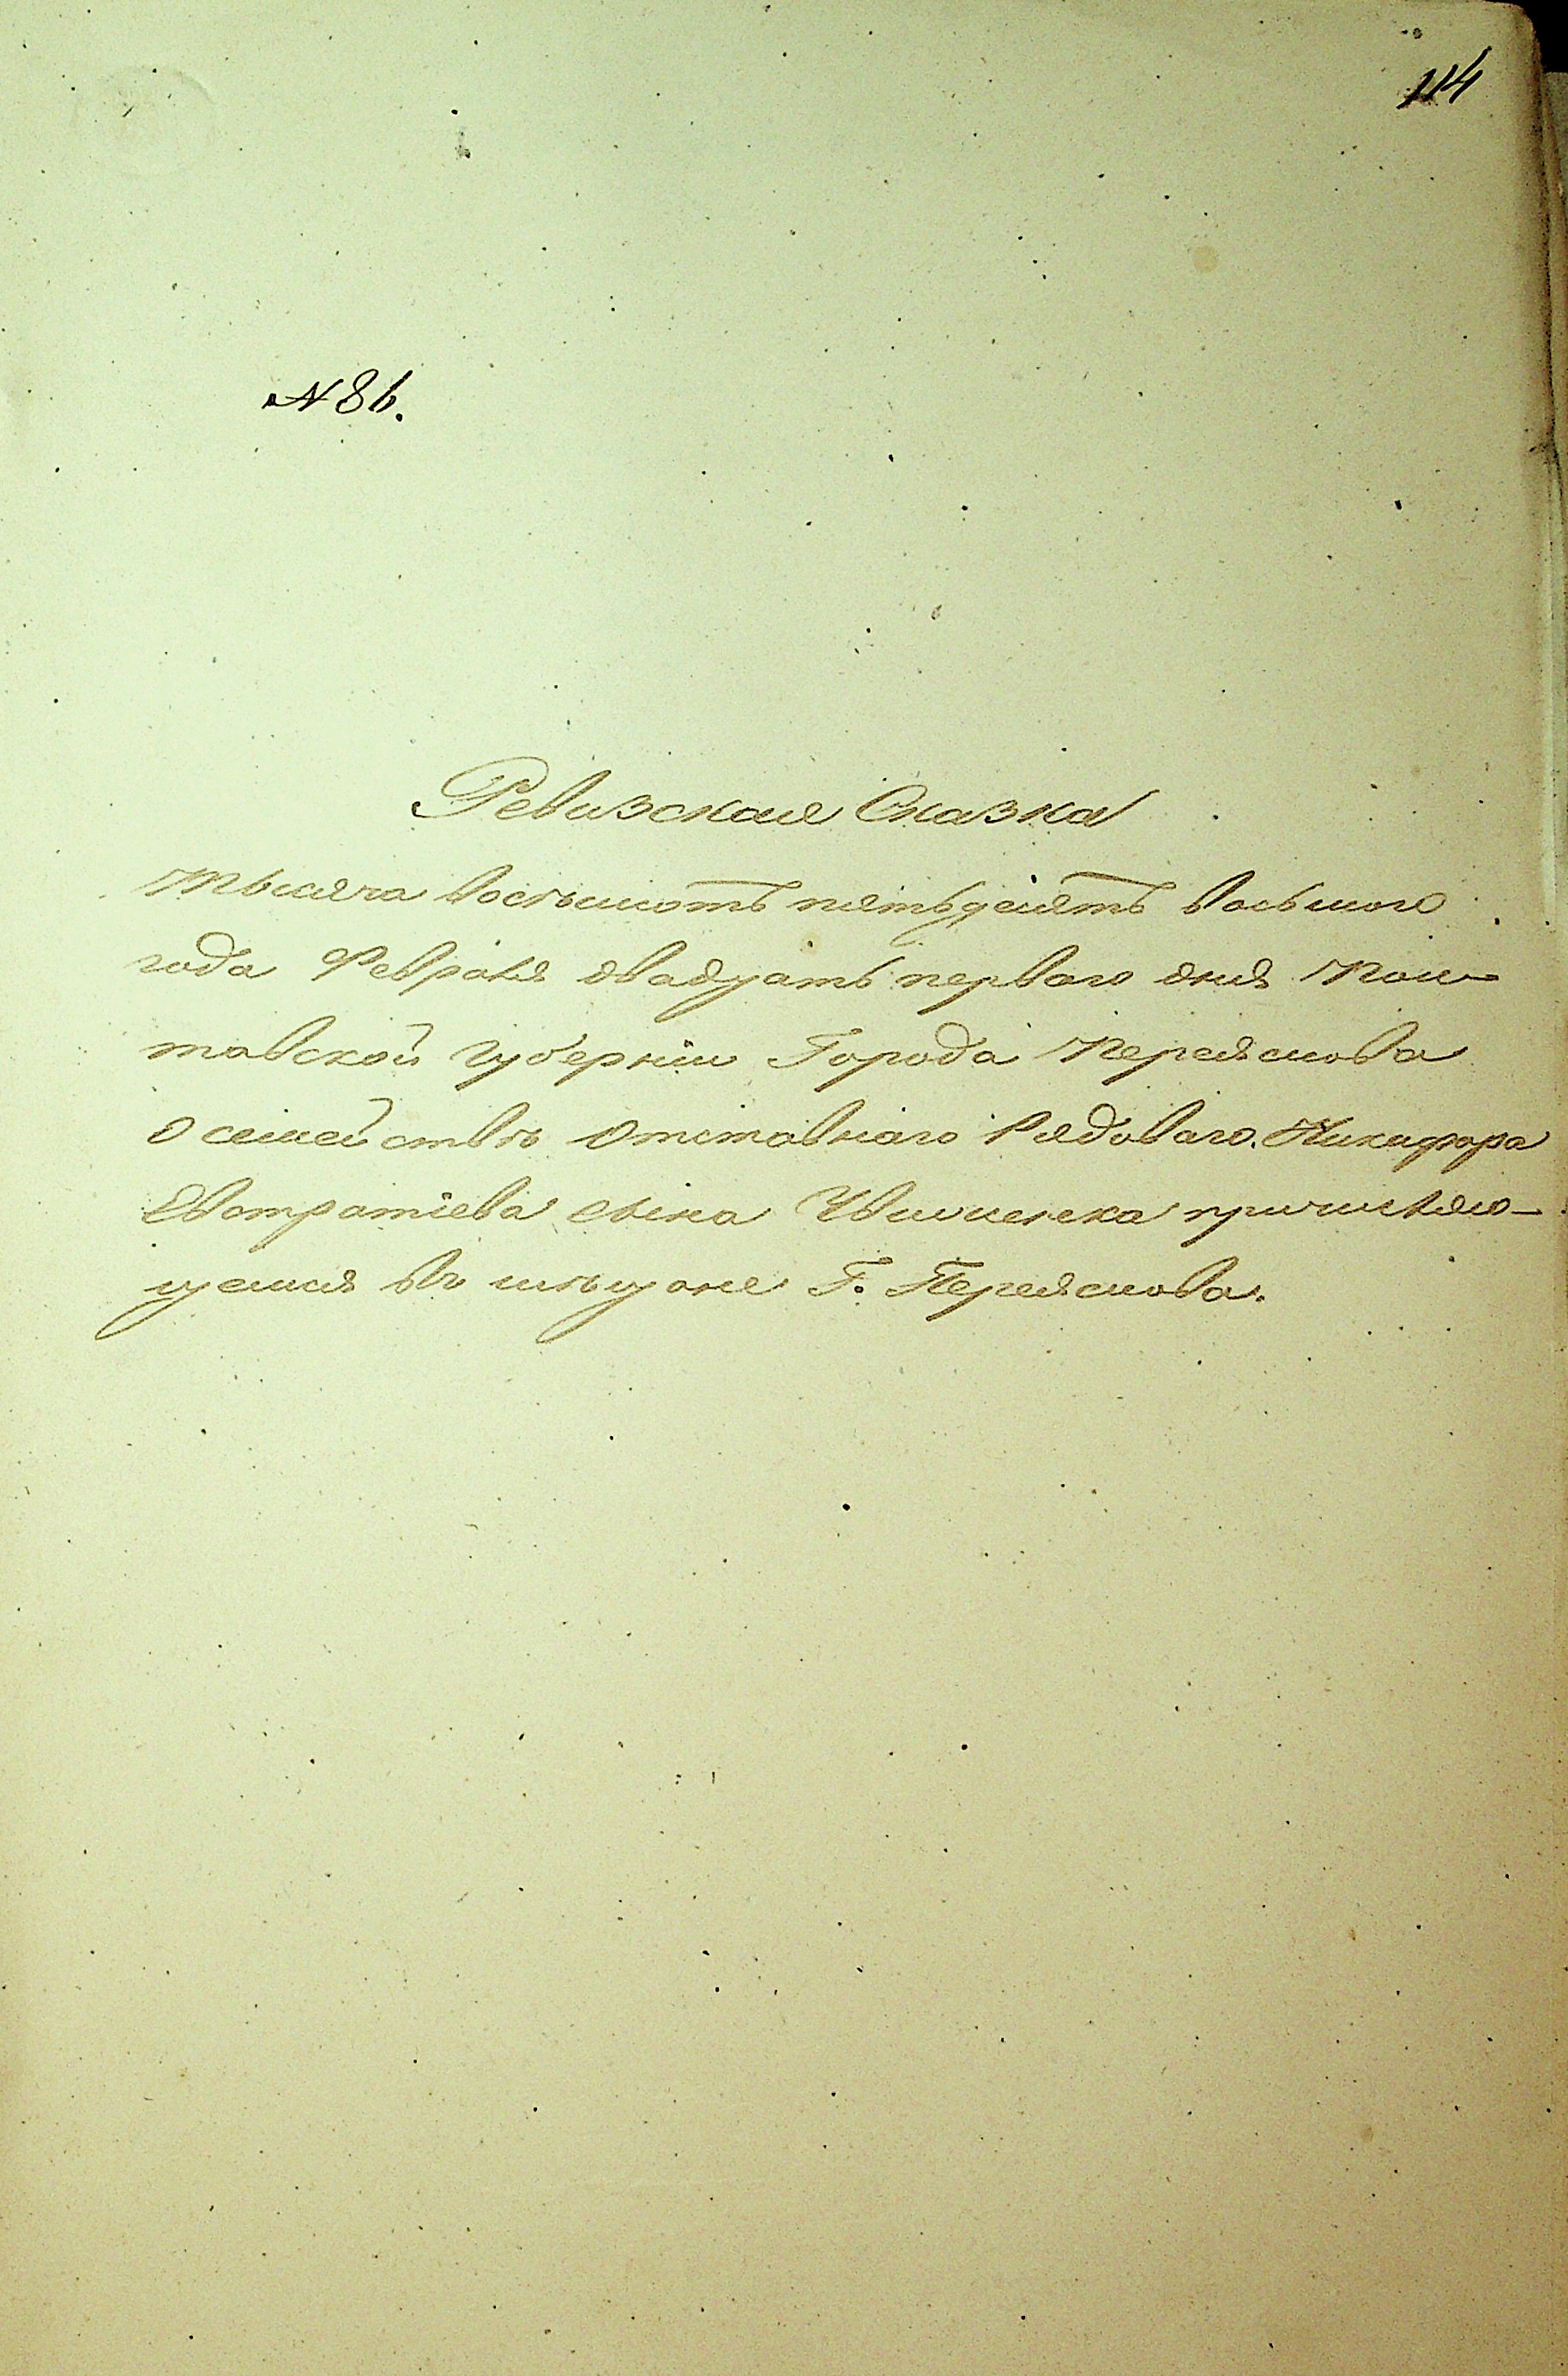 114
№ 86.
Ревизская Сказка
Тысяча восемьсотъ пятьдесятъ восьмого
года Февраля двадцать перваго дня Пол-
тавской губерніи Города Переяслова
О семействѣ Отставнаго Рядоваго Никифора
Евстратіева сына причисляю-
щемся въ мѣщане Г. Переяслова.